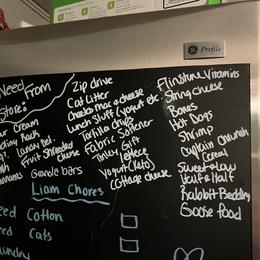 GE Profile
Need From
Store:
Sour Cream
Ranch
Fruit Shredded
Cheese
Granola bars
Zip drive
Cat Litter
Cheeks mac & cheese
Lunch Stuff (yogurt etc.
Tortilla chips
Fabric Softener
Tinley Gift
Lettece
yogurt (Keto)
Cottage cheese
Flinstone Vitamins
String cheese
Buns
Hot Dogs
Shrimp
Captain Crunch
Cereal
Sweet & Low
Half & Half
Rabbit Bedding
Goose food
Liam Chores
Feed Cotton
Feed Cats
Laundry